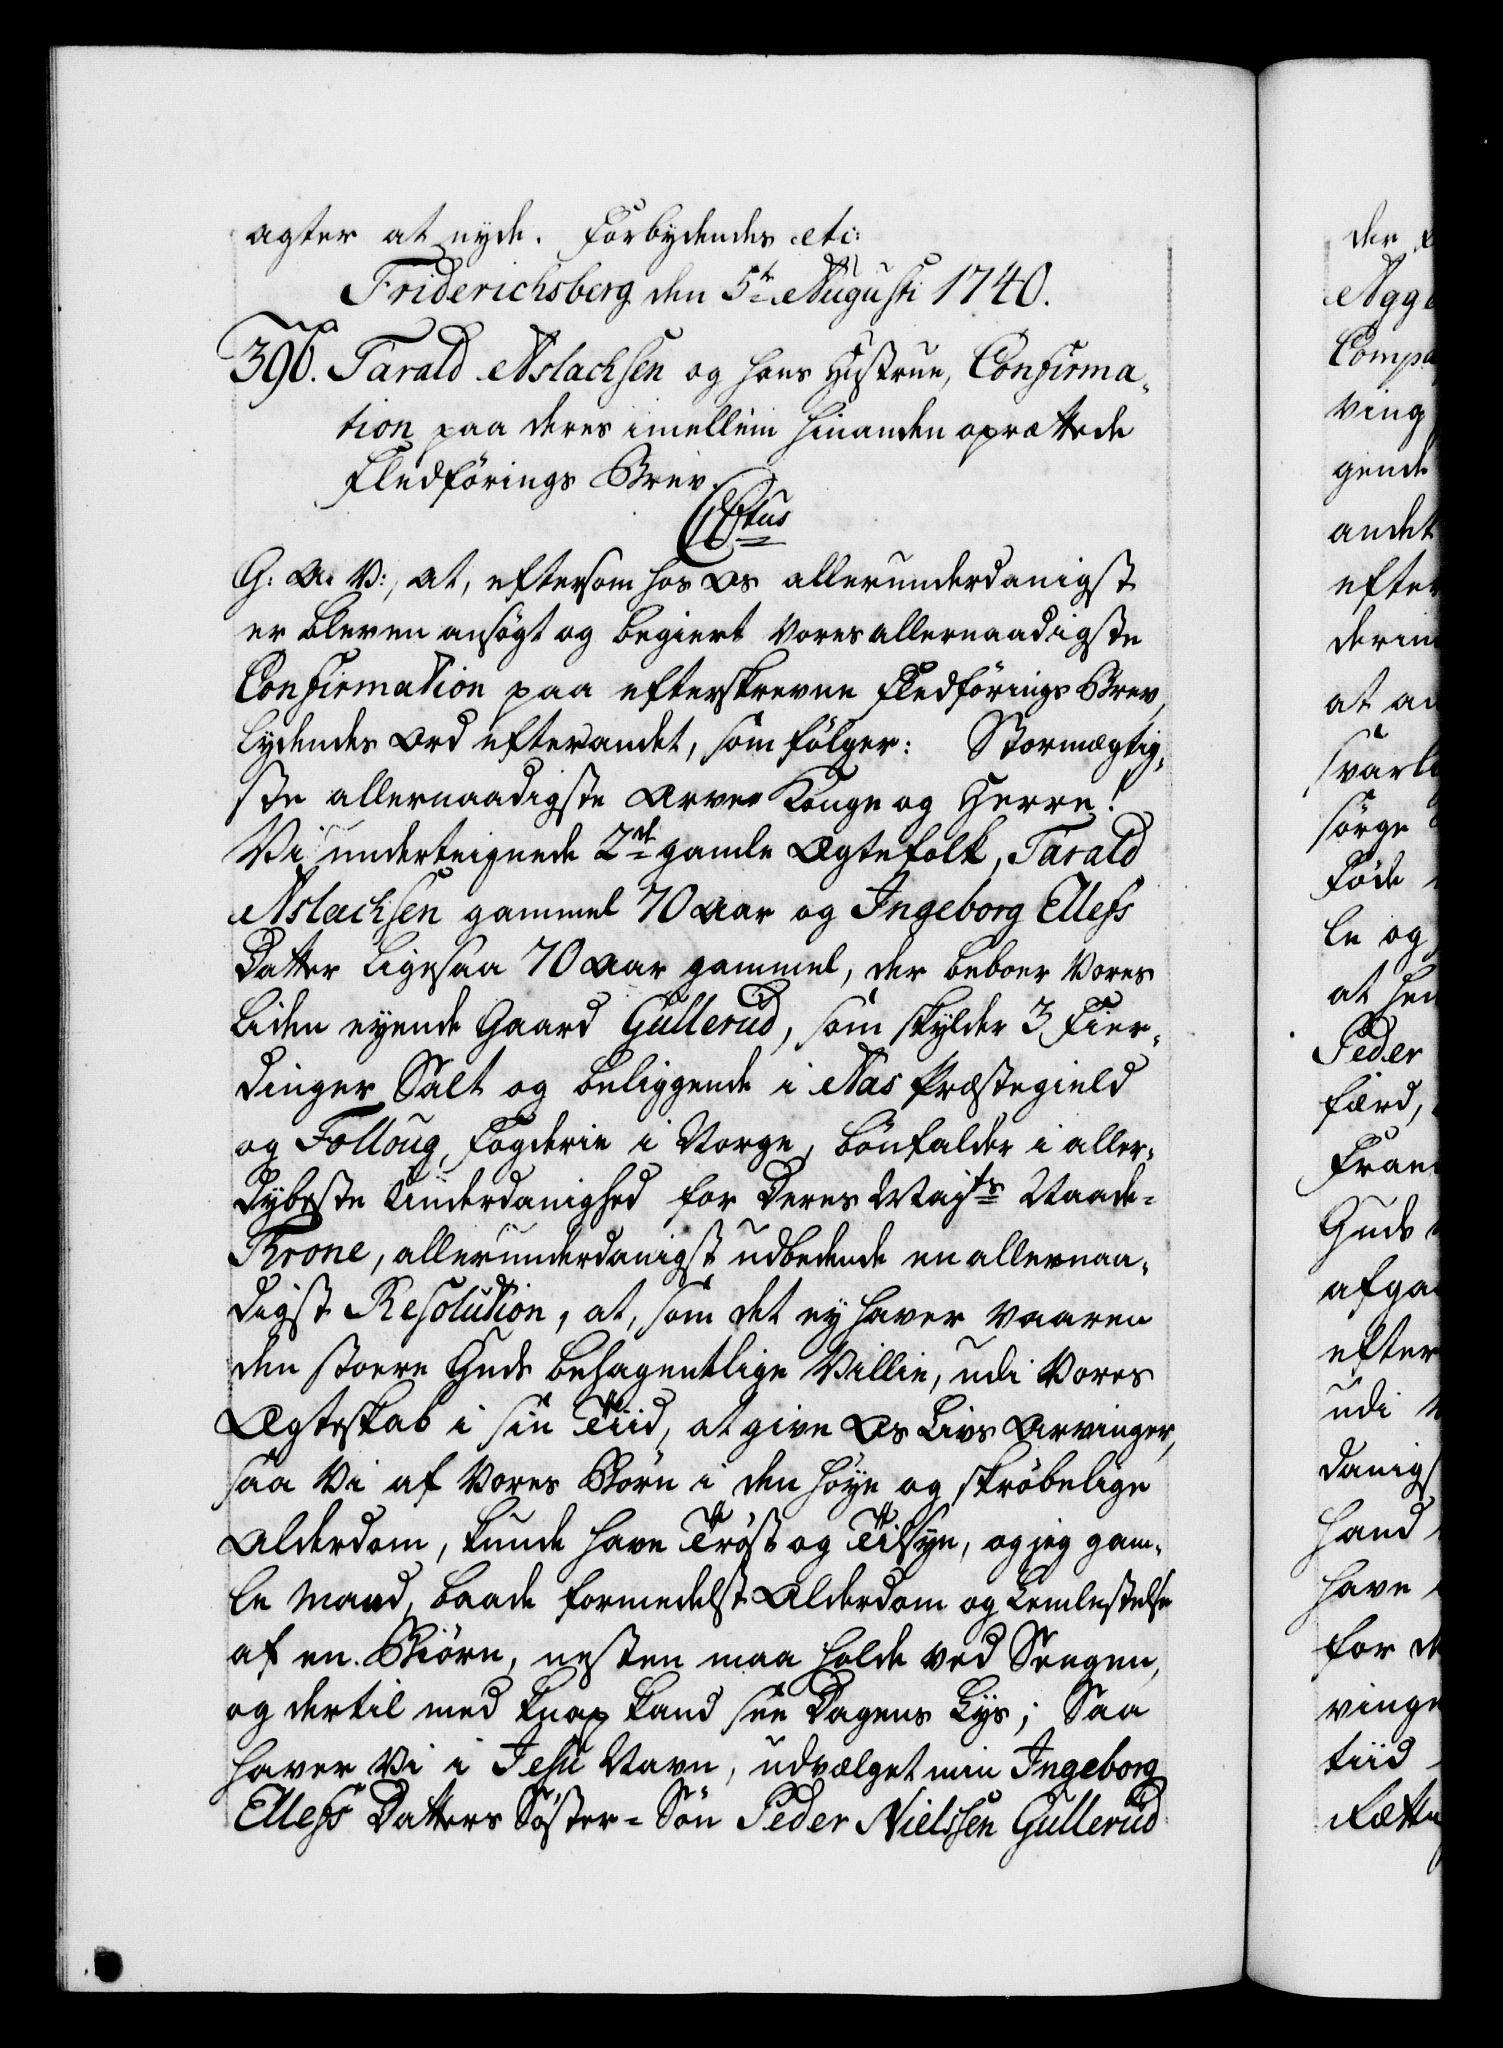 agter at nyde. Forbydendes etc:
Friderichsberg den 5te Augusti 1740.
396. Tarald Aslachsen og hans Hustrue, Confirma-
tion paa deres imellem hinanden oprættede
Fledførings Brev.
CStus
G: A: V:, at, eftersom hos Os allerunderdanigst
er bleven ansøgt og begiert Vores allernaadigste
Confirmation paa efterskrevne Fledførings Brev,
lydendes Ord efter andet, som følger: Stormægtig-
ste allernaadigste Arve Konge og Herre!
Vi underteignede 2de gamle Ægtefolk, Tarald
Aslachsen gammel 70 Aar og Ingeborg Ellefs
Datter ligesaa 70 Aar gammel, der beboer Vores
liden eyende Gaard Gullerud, som skylder 3 Fier-
dinger Salt og beliggende i Næs Præstegield
og Folloug Fogderie i Norge, bønfalder i aller-
dybeste Underdanighed for Deres Mayts Naade-
Trone, allerunderdanigst udbedende en allernaa-
digst Resolution, at, som det ey haver vaaren
den stoere Guds behagentlige Villie, udi Vores
Ægteskab i sin Tiid, at give Os Livs Arvinger,
saa Vi af Vores Børn i den høye og skrøbelige
Alderdom, kunde have Trøst og Tilsyn, og jeg gam-
le Mand, baade formedelst Alderdom og Lemlestelse
af en Biørn, nesten maa holde ved Sengen,
og dertil med knap kand see Dagens Lys; Saa
haver Vi i Jesu Navn, udvælget min Ingeborg
Ellefs Datters Søster-Søn Peder Nielssen Gullerud
der
Agg
Compa
ving
gende
andet
efter
derim
at an
svarl
sørge
Føde
le og
at hen
Peder
færd,
Fran
Guds
afga
efter
udi
danigs
hand
have
for d
vinge
tiid
Rætte